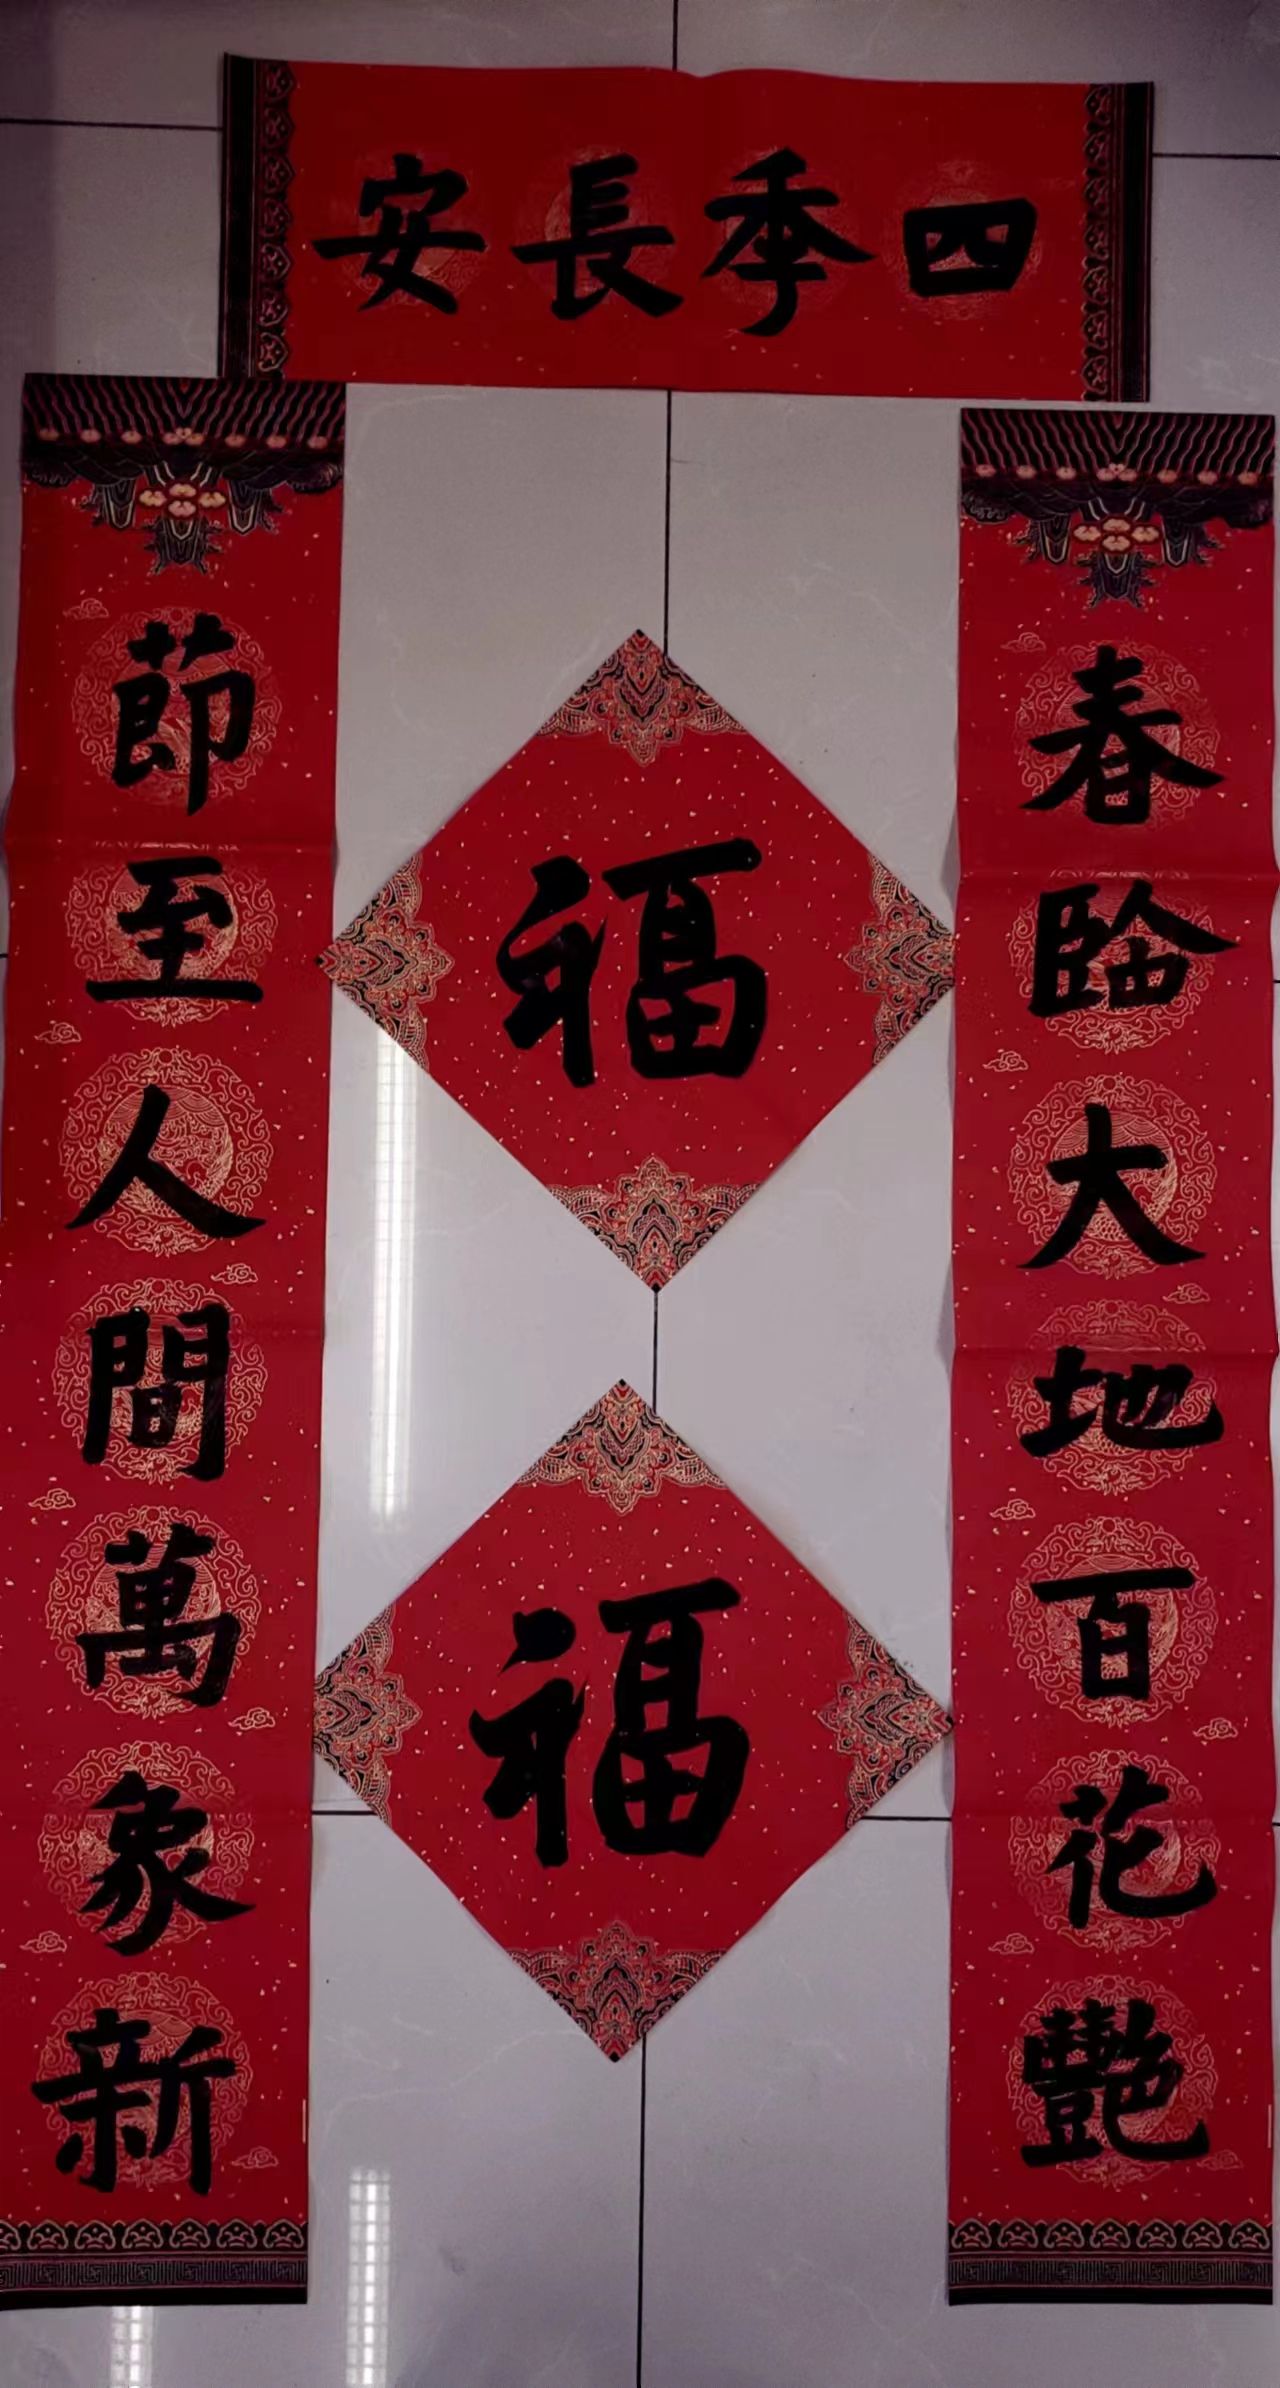 四季長安
春臨大地百花艷
節至人間萬象新
福
福